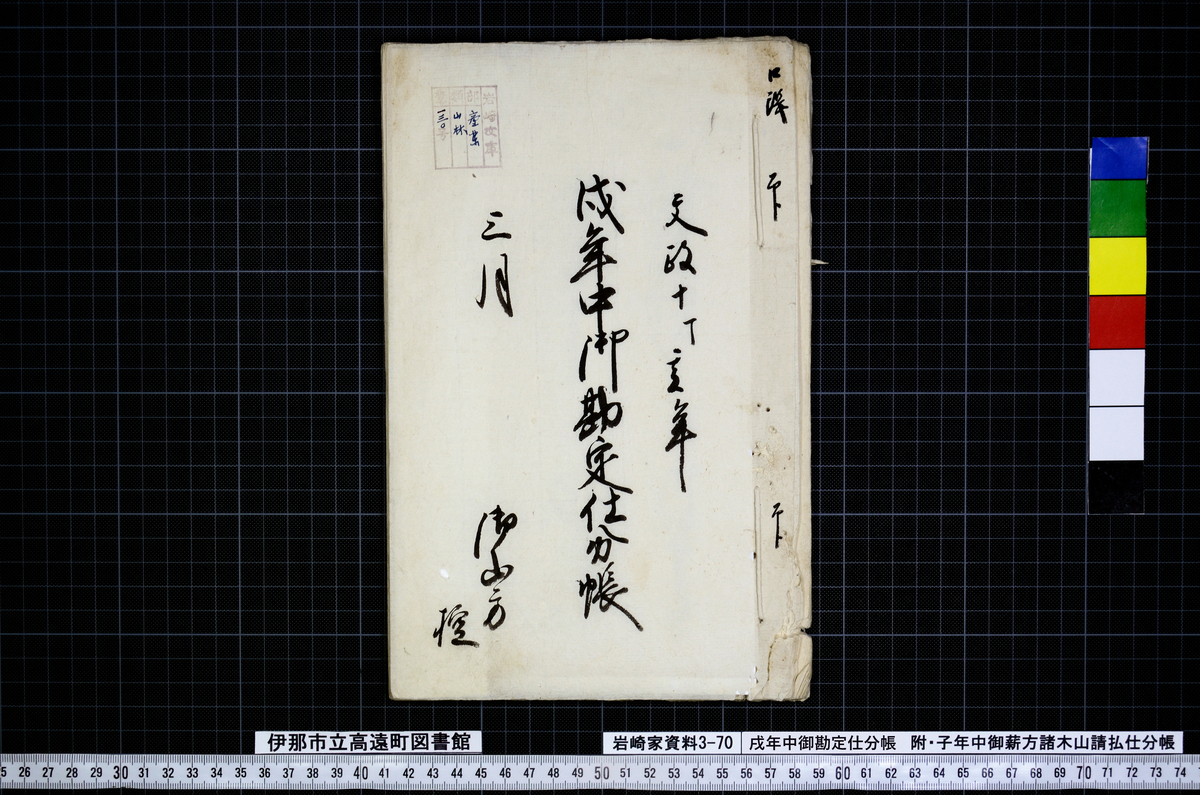 文政十丁亥年
戌年中御勘定仕分帳
三月
御山方
控
岩崎文庫
部 産業
類 山林
一三〇号
伊那市立高遠町図書館
岩崎家資料3-70
戌年中御勘定仕分帳 附・子年中御薪方諸木山請払仕分帳
5 26 27 28 29 30 31 32 33 34 35 36 37 38 39 40 41 42 43 44 45 46 47 48 49 50 51 52 53 54 55 56 57 58 59 60 61 62 63 64 65 66 67 68 69 70 71 72 73 74